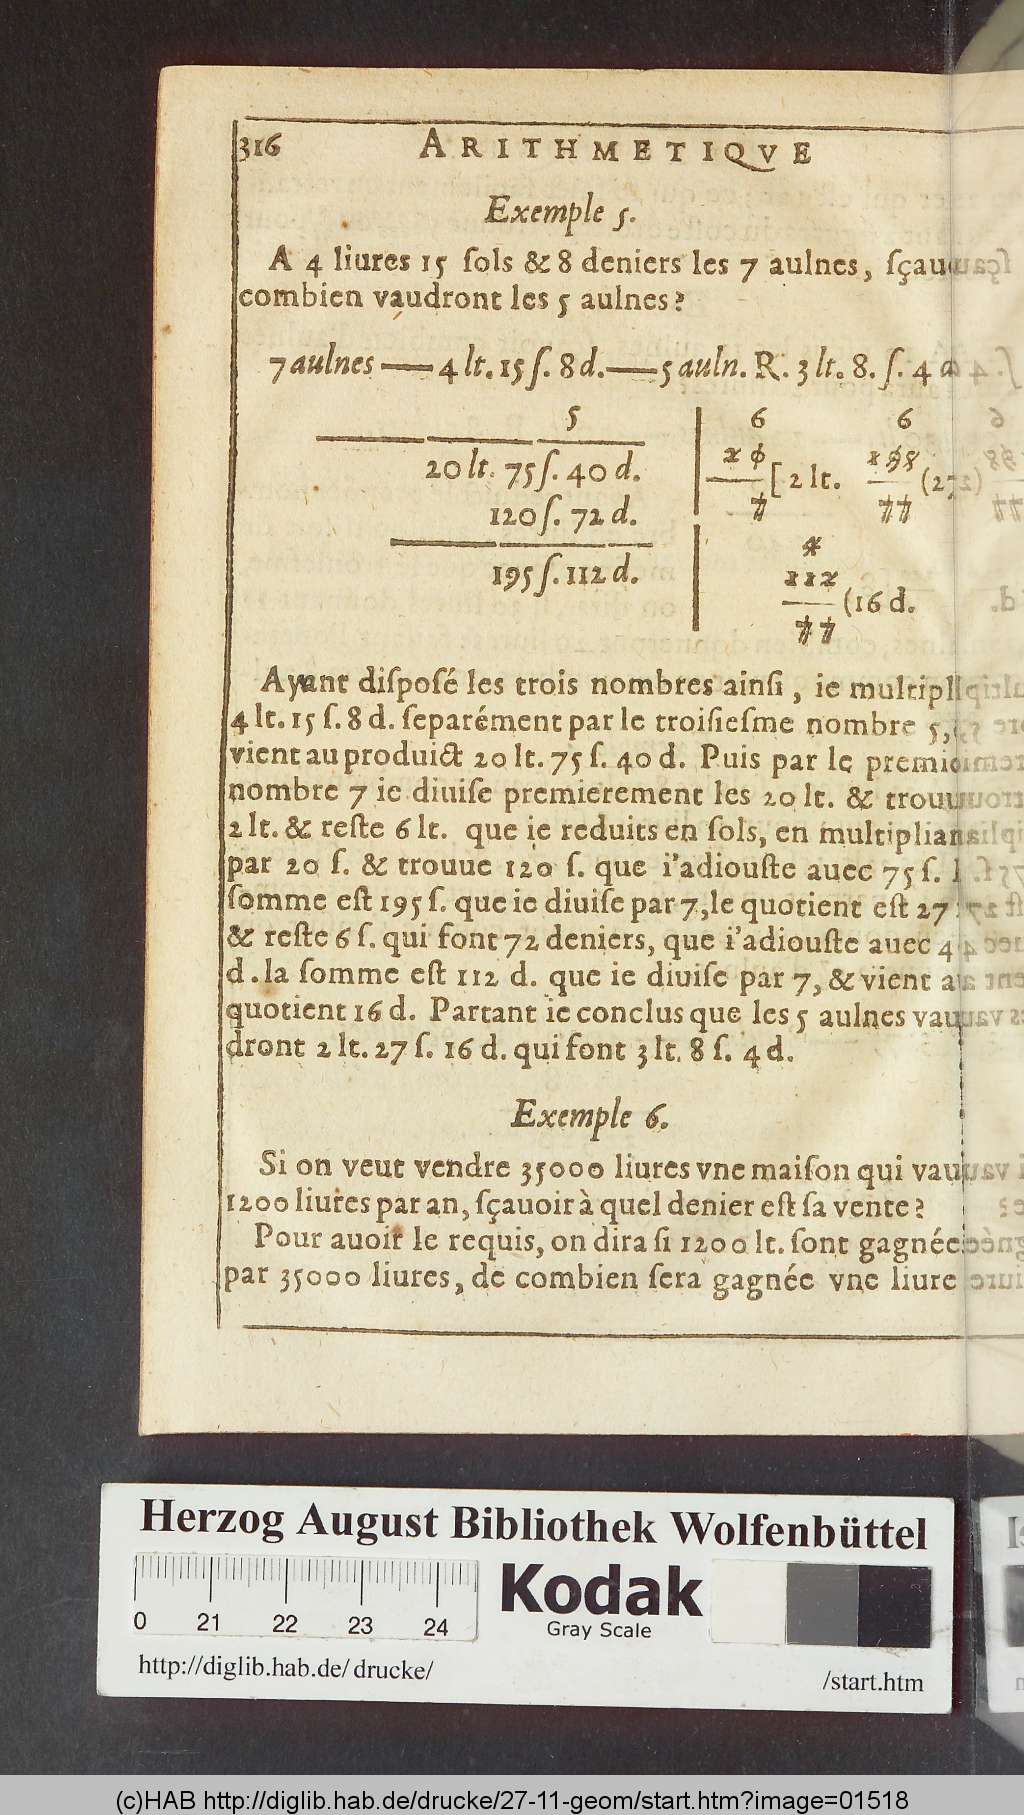 316 ARITHMETIQVE
Exemple 5.
A 4 liures 15 ſols & 8 deniers les 7 aulnes, ſçau
combien vaudront les 5 aulnes?
7 aulnes — 4 lt. 15 ſ. 8 d. — 5 auln. R. 3 lt. 8. ſ. 4 d
5
20 lt. 75 ſ. 40 d.
120 ſ. 72 d.
195 ſ. 112 d.
6 6
2 0 [2 lt. 1 9 8 (27
7 7 7
4
1 1 2 (16 d.
7 7
Ayant diſpoſé les trois nombres ainſi, ie multipl
4 lt. 15 ſ. 8 d. ſeparément par le troiſieſme nombre 5,
vient au produict 20 lt. 75 ſ. 40 d. Puis par le premi
nombre 7 ie diuiſe premierement les 20 lt. & trouu
2 lt. & reſte 6 lt. que ie reduits en ſols, en multiplian
par 20 ſ. & trouue 120 ſ. que i'adiouſte auec 75 ſ. l
ſomme eſt 195 ſ. que ie diuiſe par 7, le quotient eſt 27
& reſte 6 ſ. qui font 72 deniers, que i'adiouſte auec 4
d. la ſomme eſt 112 d. que ie diuiſe par 7, & vient a
quotient 16 d. Partant ie conclus que les 5 aulnes vau
dront 2 lt. 27 ſ. 16 d. qui font 3 lt. 8 ſ. 4 d.
Exemple 6.
Si on veut vendre 35000 liures vne maiſon qui vau
1200 liures par an, ſçauoir à quel denier eſt ſa vente?
Pour auoir le requis, on dira ſi 1200 lt. ſont gagnée
par 35000 liures, de combien ſera gagnée vne liure
Herzog August Bibliothek Wolfenbüttel
0 21 22 23 24
Kodak
Gray Scale
http://diglib.hab.de/drucke/
/start.htm
(c)HAB http://diglib.hab.de/drucke/27-11-geom/start.htm?image=01518